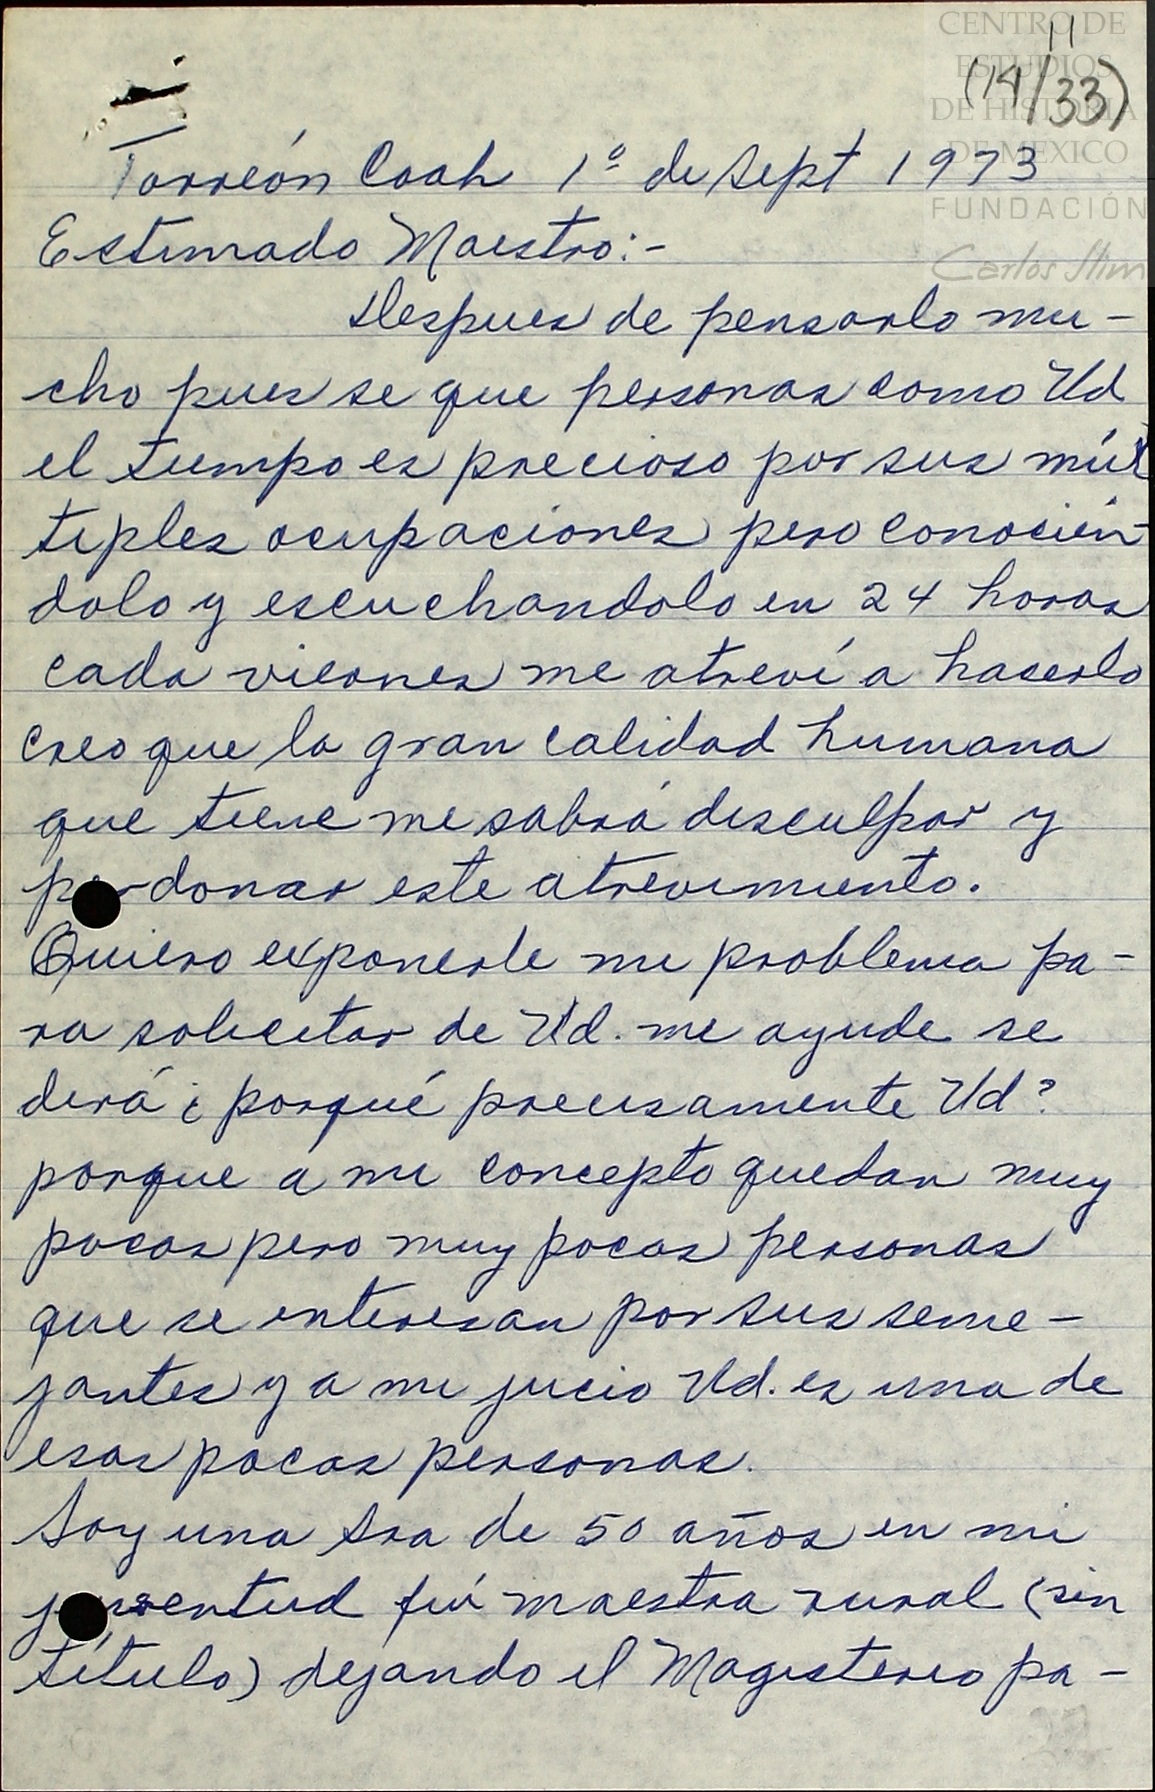 CENTRO DE
ESTUDIOS
DE HISTORIA
DE MEXICO
FUNDACIÓN
Carlos Slim
11
(14/33)
Torreón Coah 1º de Sept 1973
Estimado Maestro:-
Despues de pensarlo mu-
cho pues se que personas como Ud
el tiempo es precioso por sus múl
tiples ocupaciones pero conocién-
dolo y escuchandolo en 24 horas
cada viernes me atreví a hacerlo
creo que la gran calidad humana
que tiene me sabrá disculpar y
perdonar este atrevimiento.
Quiero exponerle mi problema pa-
ra solicitar de Ud. me ayude se
dirá ¿porqué precisamente Ud?
porque a mi concepto quedan muy
pocas pero muy pocas personas
que se interesan por sus seme-
jantes y a mi jucio Ud. es una de
esas pocas personas.
Soy una Sra de 50 años en mi
juventud fuí maestra rural (sin
título) dejando el Magisterio pa-